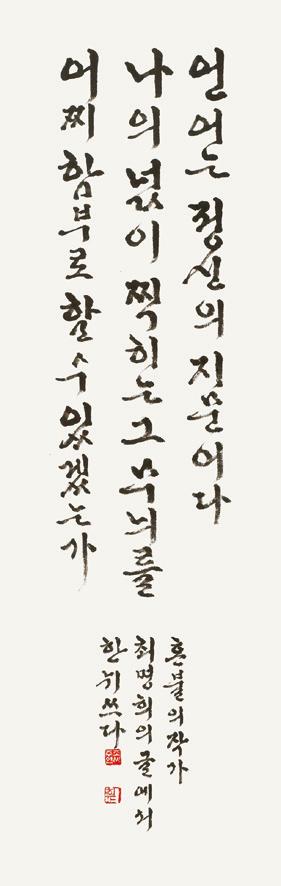 언어는 정신의 지문이다
나의 넋이 찍히는 그 무늬를
어찌 함부로 할 수 있겠는가
혼불의 작가
최명희의 글에서
한뉘 쓰다